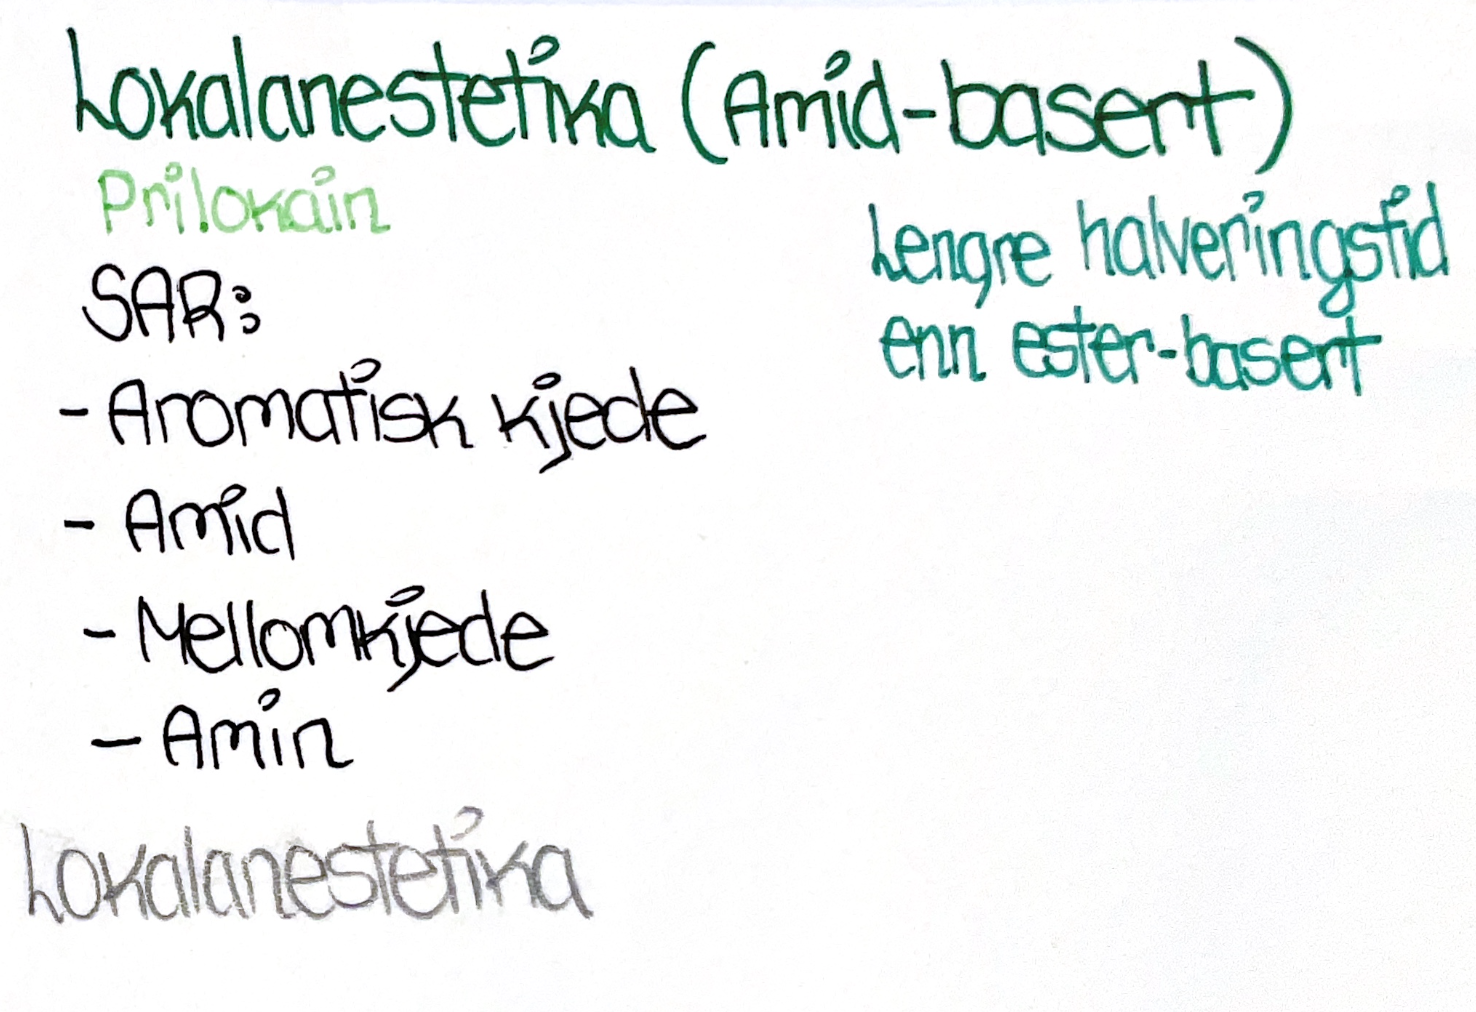 Lokalanestetika (Amid-basert)
Prilokain
Lengre halveringstid
enn ester-basert
SAR:
- Aromatisk kjede
- Amid
- Mellomkjede
- Amin
Lokalanestetika